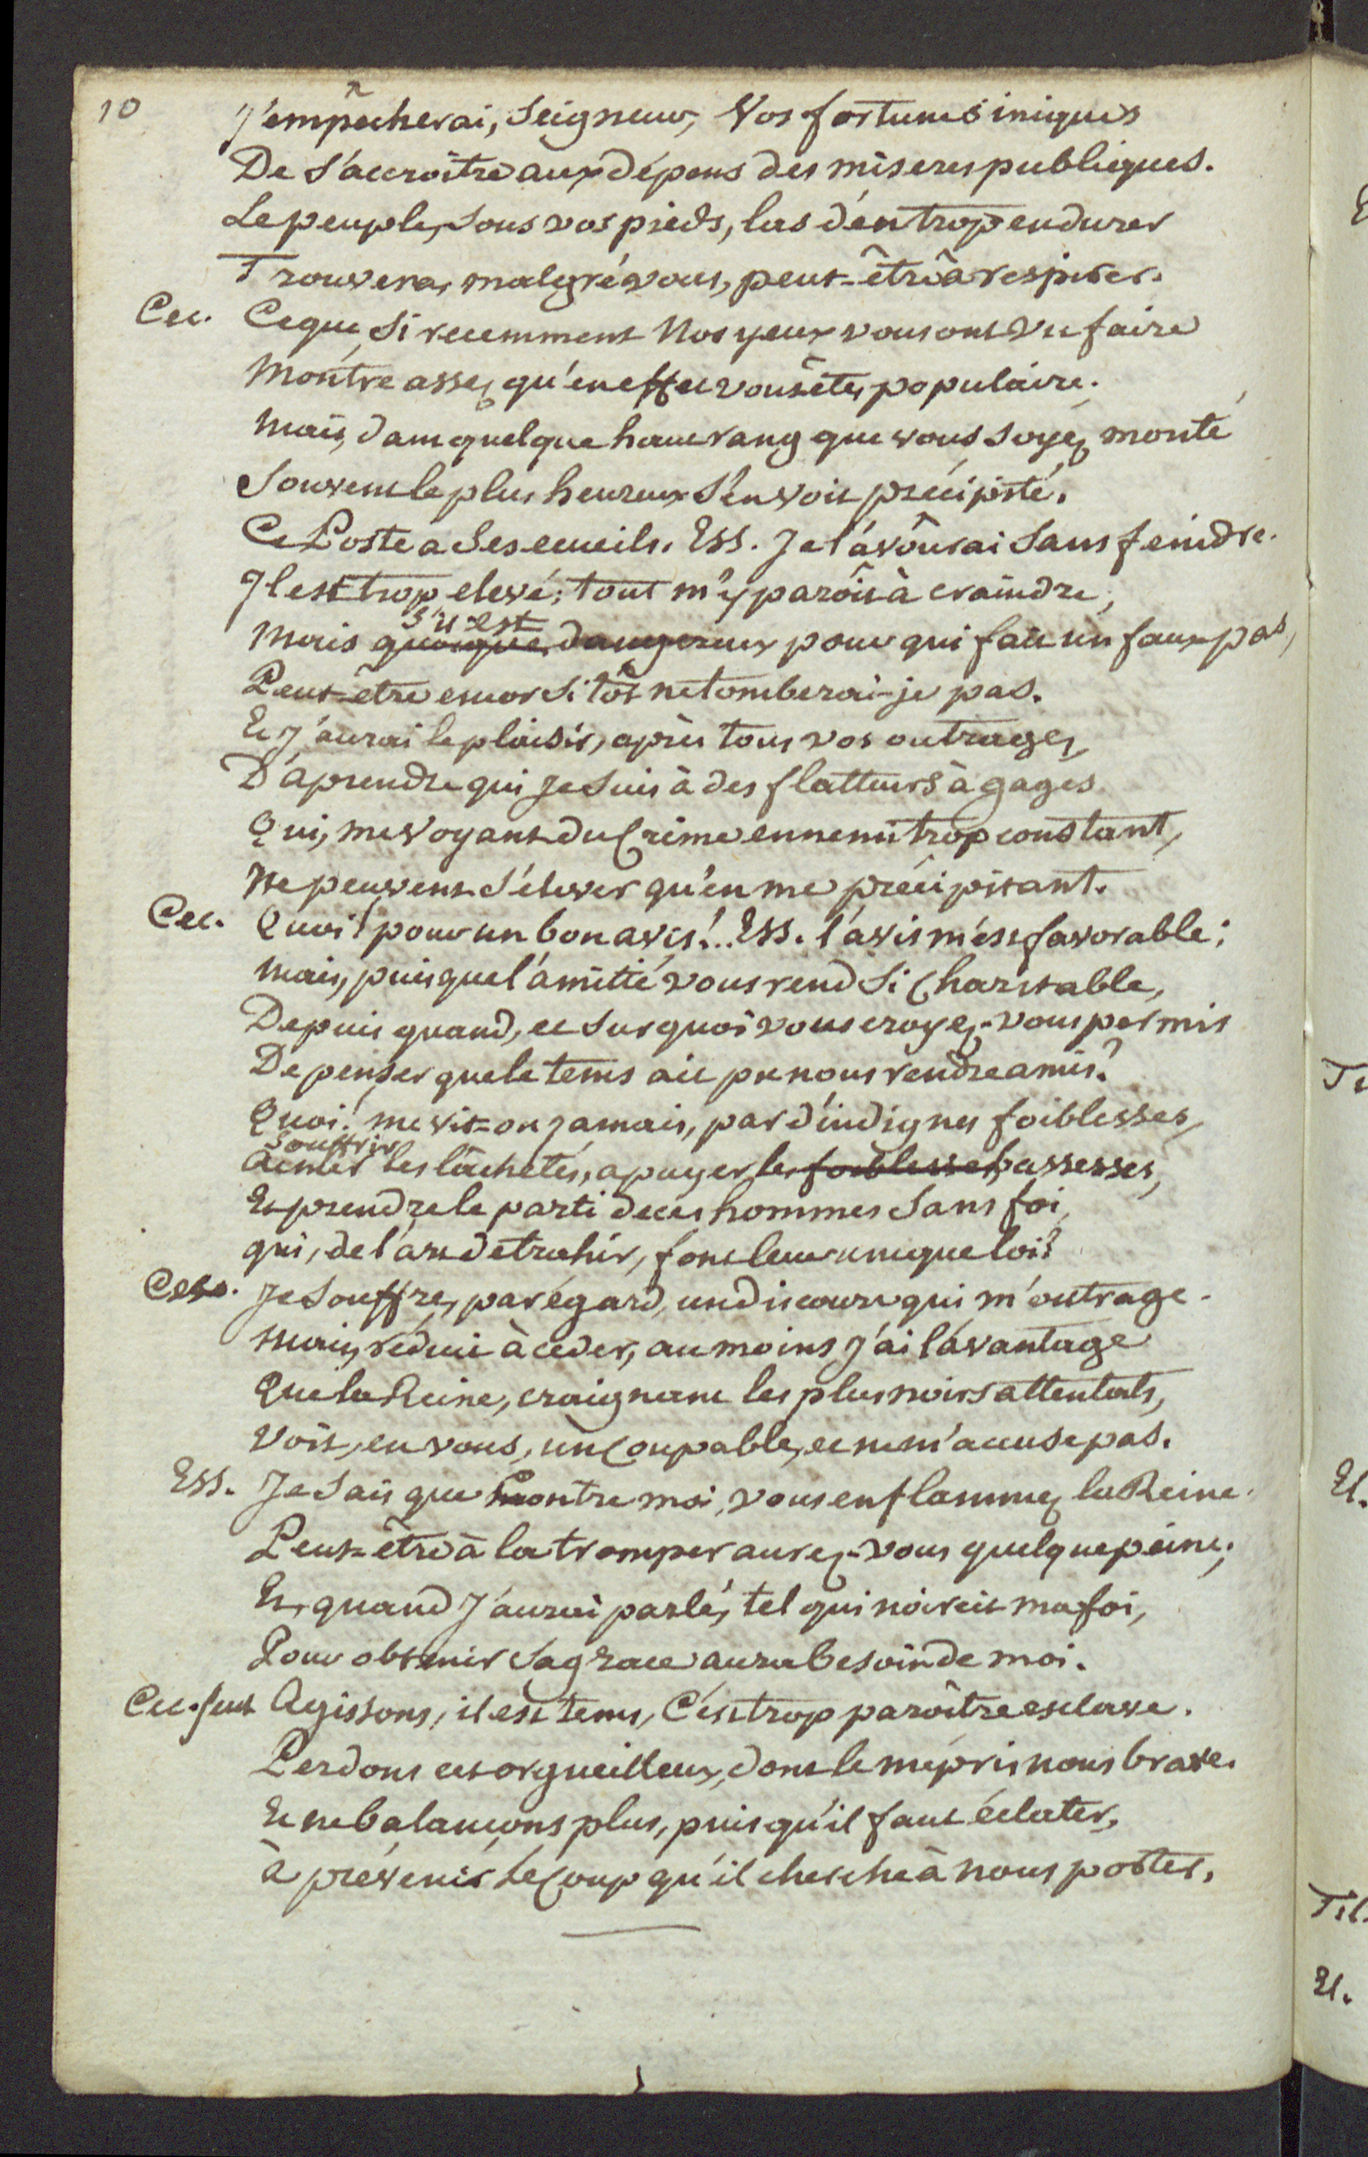 10
J'empêcherai, Seigneur, Vos fortunes iniques
De s'accroître aux dépens des miseres publiques.
Le peuple, sous vos pieds, las d'en trop endurer
Trouvera, malgré vous, peut-être à respirer.
Cec. Ce que si recemment Nos yeux vous ont vu faire
Montre assez qu'en effet vous êtes populaire.
Mais, dans quelque haut rang que vous soyez monté
Souvent le plus heureux s'en voit précipité.
Ce Poste a ses ecueils. Ess. Je l'avoûrai sans feindre.
Il est trop elevé; tout m'y paroît à craindre,
s'il est
Mais quoique dangereux pour qui fait un faux pas,
Peut-être encor si tôt ne tomberai-je pas.
Et j'aurai le plaisir, après tous vos outrages,
D'aprendre qui Je suis à des flatteurs à gages
Qui, me voyant du Crime ennemi trop constant,
Ne peuvent s'élever qu'en me précipitant.
Cec. Quoi! pour un bon avis!.. Ess. l'avis m'est favorable;
Mais, puisque l'amitié vous rend si Charitable,
Depuis quand, et sur quoi vous croyez-vous permis
De penser que le tems ait pu nous rendre amis?
Quoi! me vit-on jamais, par d'indignes foiblesses,
souffrir
Aimer les lâchetés, apuyer les foiblesses bassesses,
Et prendre le parti de ces hommes sans foi,
qui, de l'art de trahir, font leur unique loi?
Cec. Je souffre, par égard, un discours qui m'outrage.
Mais, réduit à ceder, au moins j'ai l'avantage
Que la Reine, craignant les plus noirs attentats,
Voit, en vous, un Coupable, et ne m'accuse pas.
Ess. Je sais que contre moi, vous enflammez la Reine.
Peut-être à la tromper aurez-vous quelque peine;
Et, quand j'aurai parlé, tel qui noircit ma foi,
Pour obtenir sa grace aura besoin de moi.
Cec. seul Agissons, il est tems, C'est trop paroître esclave.
Perdons cet orgueilleux, dont le mépris nous brave.
Et ne balançons plus, puisqu'il faut éclater,
à prévenir le Coup qu'il cherche à nous porter.
El.
Til.
El.